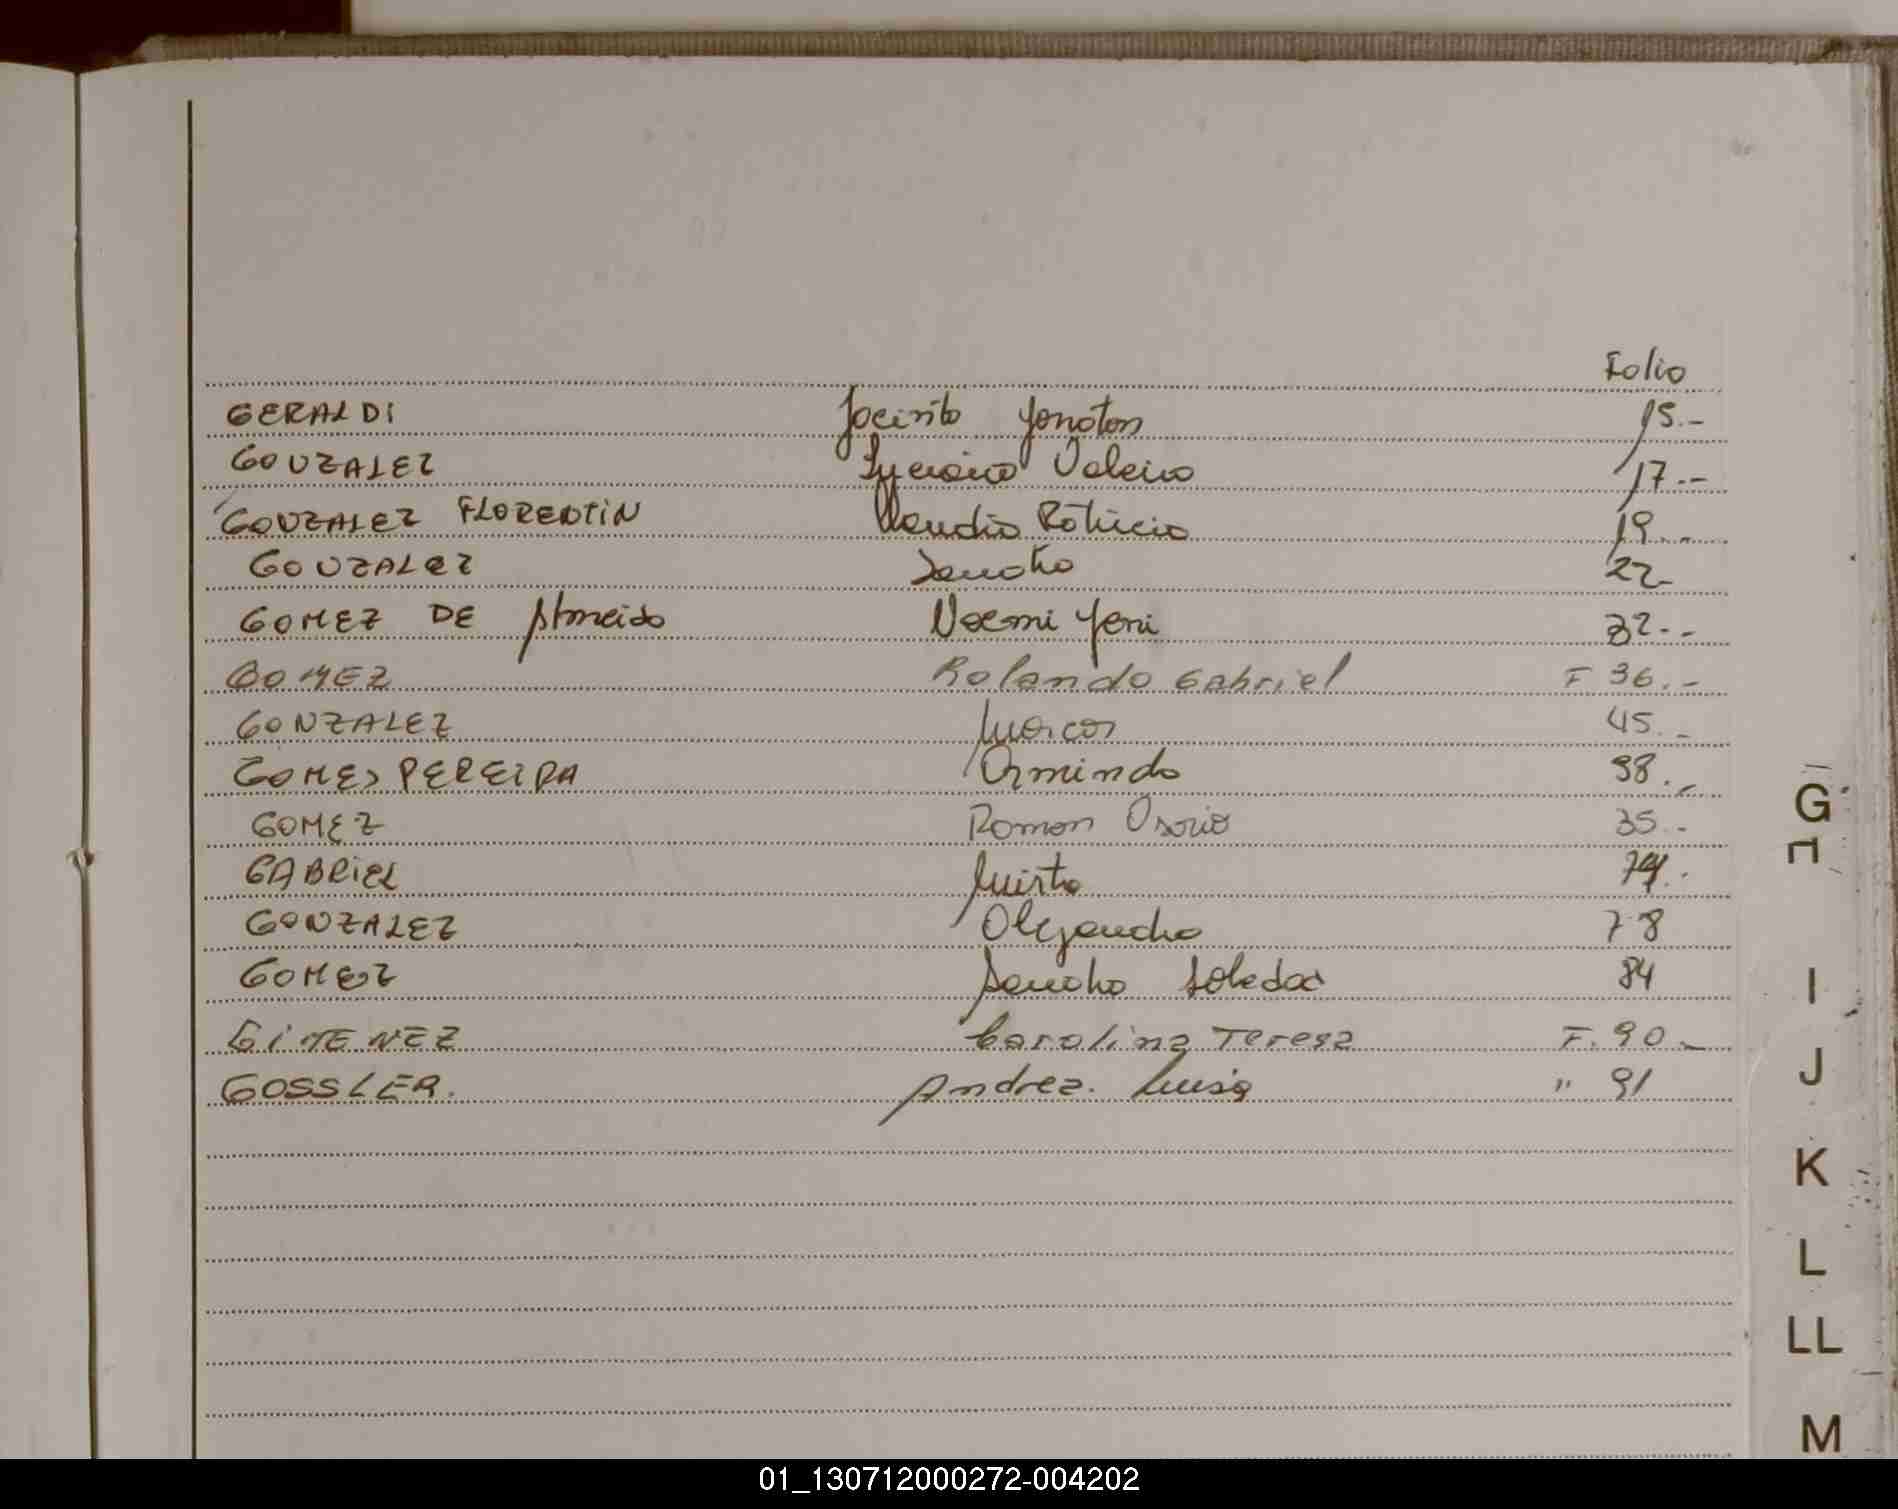 Folio
GERALDI Jacinto Jonatan 15.-
GONZALEZ Valeria 17.--
GONZALEZ FLORENTIN Claudia Patricia 19.--
GONZALEZ Sandra 22-
GOMEZ DE Almeida Noemi Yeni 32.--
GOMEZ Rolando Gabriel F 36.-
GONZALEZ Marcos 45.-
GOMES PEREIRA Armindo 98.-
GOMEZ Roman Osorio 35.-
GABRIEL Mirta
GONZALEZ Alejandra 78
GOMEZ Sandra Soledad 84
GIMENEZ Carolina Teresa F. 90.-
GOSSLER. Andrea. Luisa " 91
G
I
J
K
L
LL
M
01_130712000272-004202